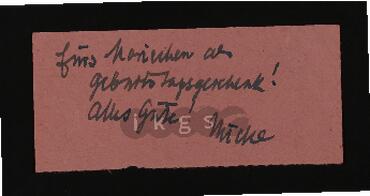 Fürs Mariechen als
Geburtstagsgeschenk!
Alles Gute!
ikgs